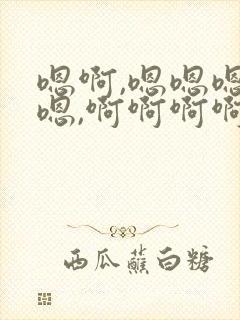 嗯啊,嗯嗯嗯
嗯,啊啊啊啊
西瓜蘸白糖